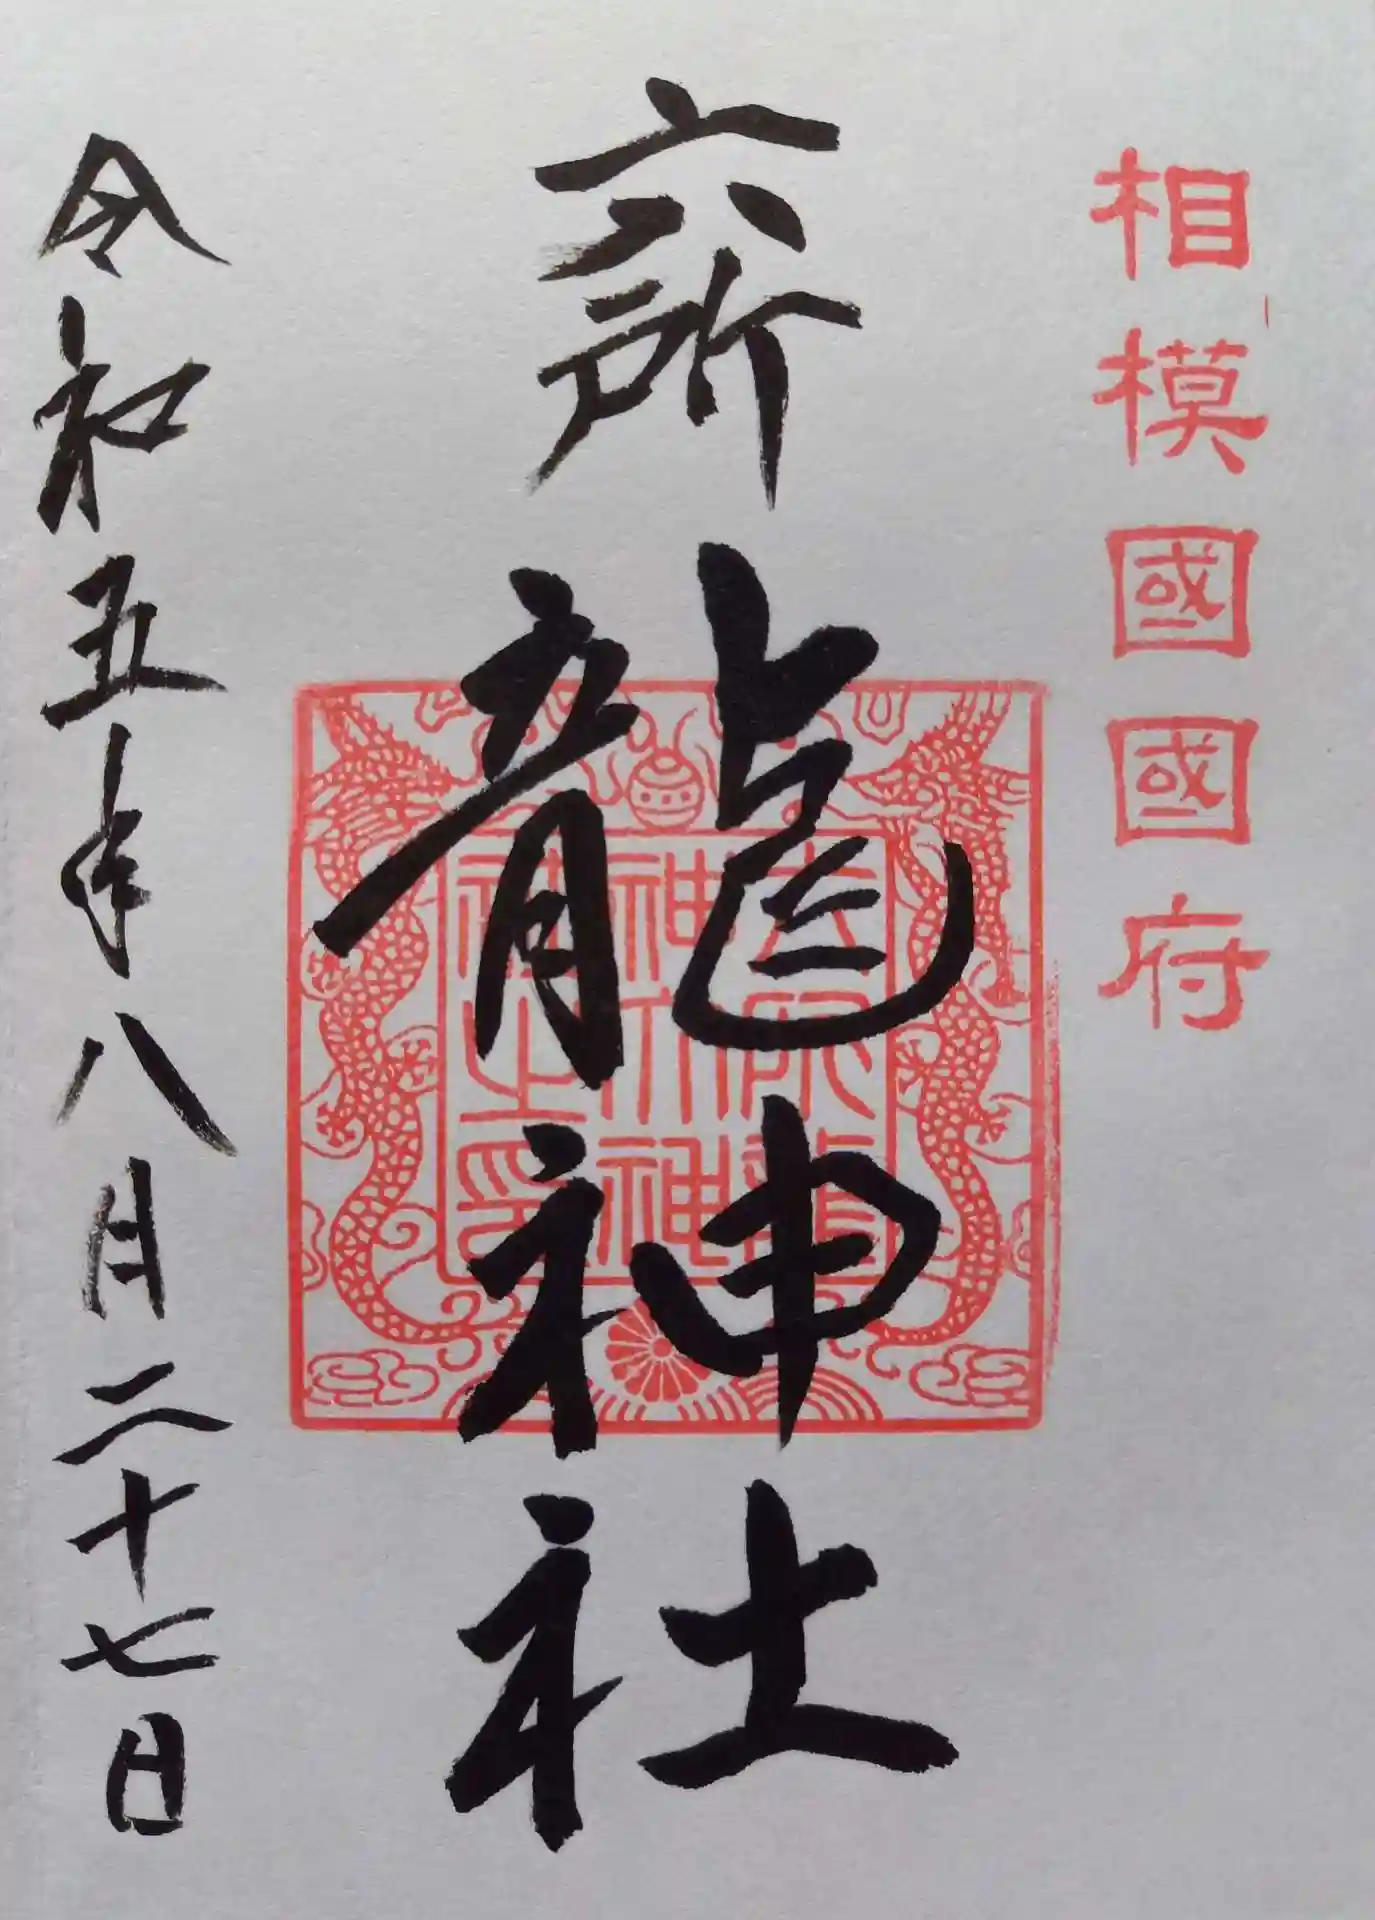 相模國國府
六所
龍神社
令和五年八月二十七日